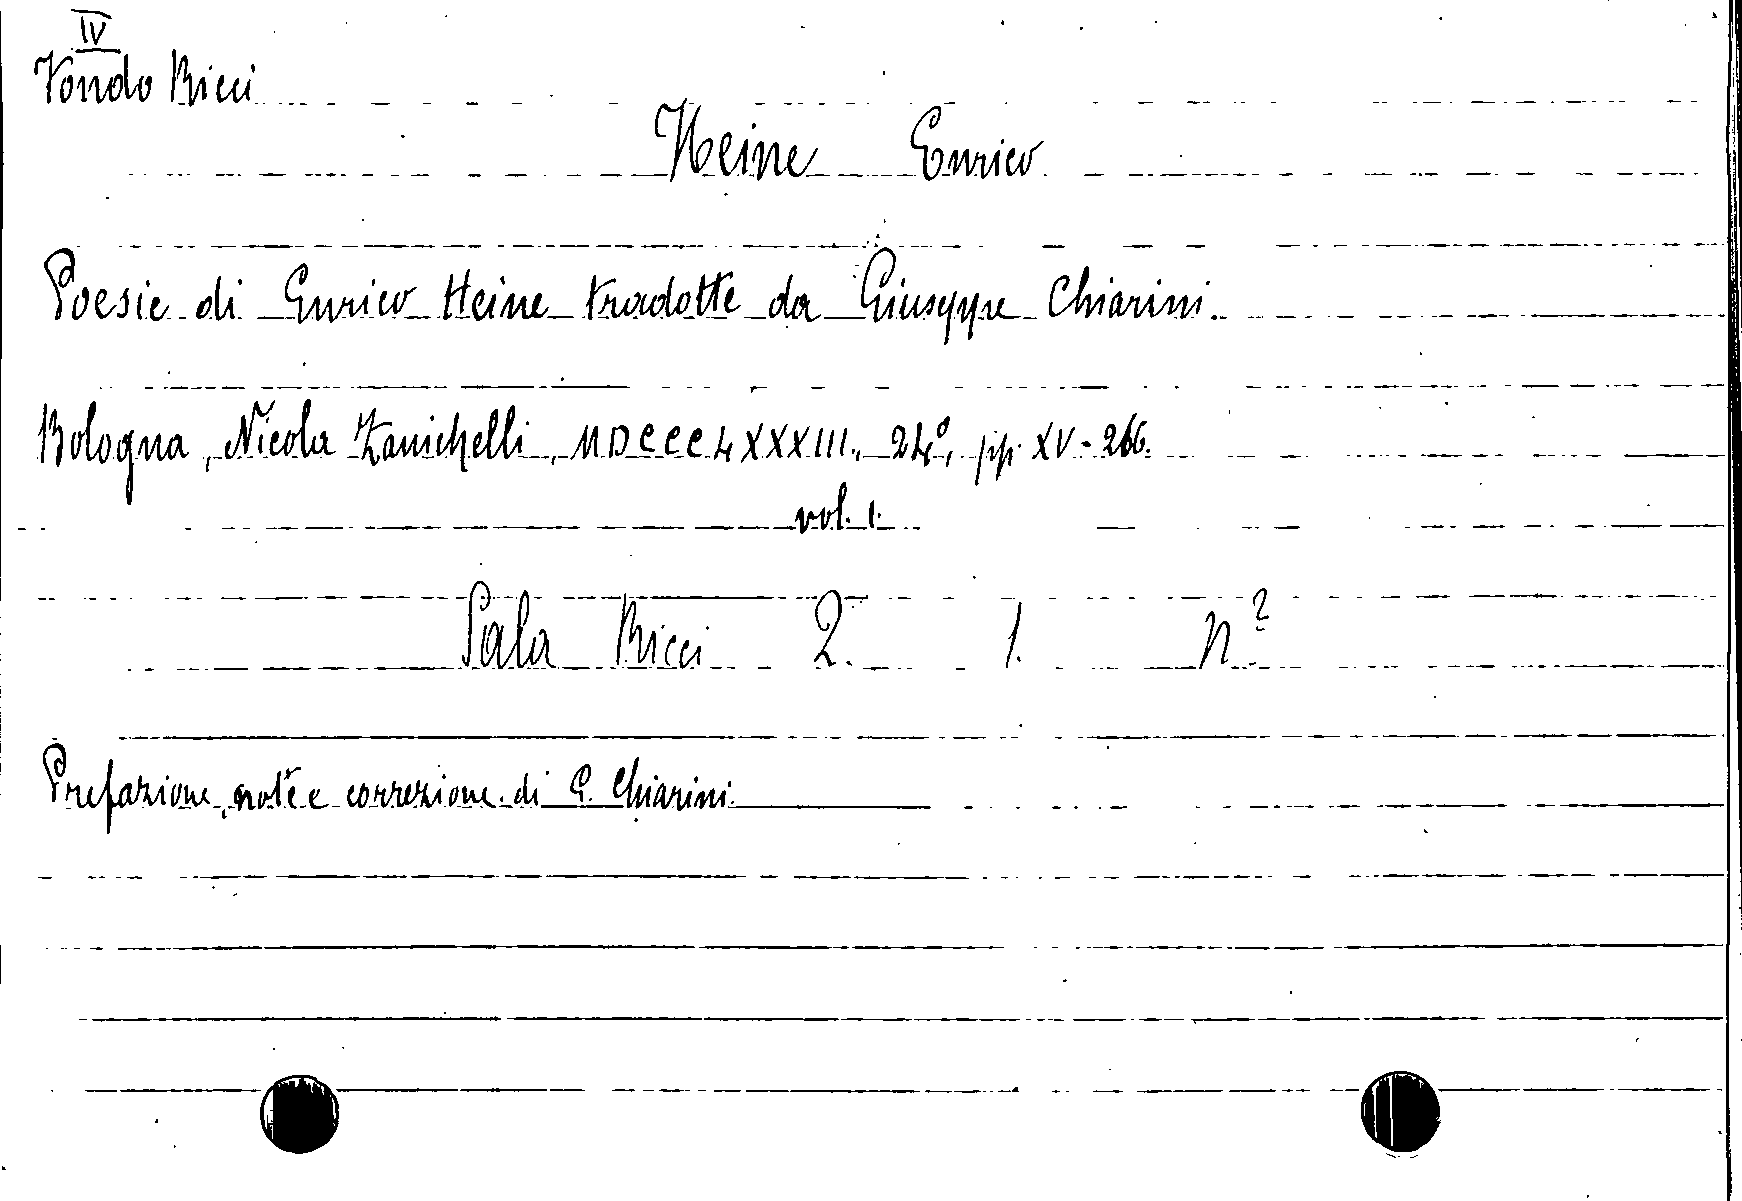 IV
Fondo Ricci
Heine Enrico
Poesie di Enrico Heine tradotte da Giuseppe Chiarini.
Bologna, Nicola Zanichelli, MDCCCLXXXIII., 24°, pp. XV-266.
vol. 1.
Sala Ricci 2. 1. n.2
Prefazione, note e correzione di G. Chiarini.